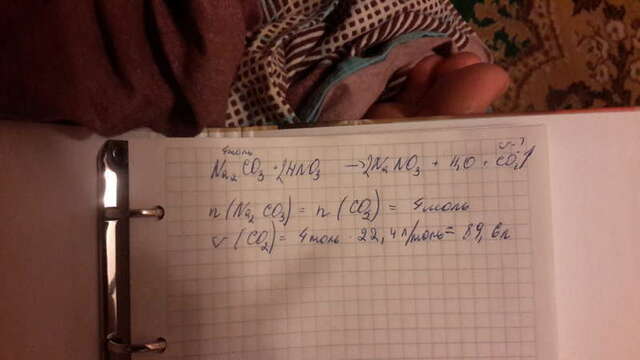 4моль V-?
Na₂CO₃ + 2HNO₃ → 2NaNO₃ + H₂O + CO₂↑
n (Na₂CO₃) = n (CO₂) = 4моль
V (CO₂) = 4моль · 22,4л/моль = 89,6л